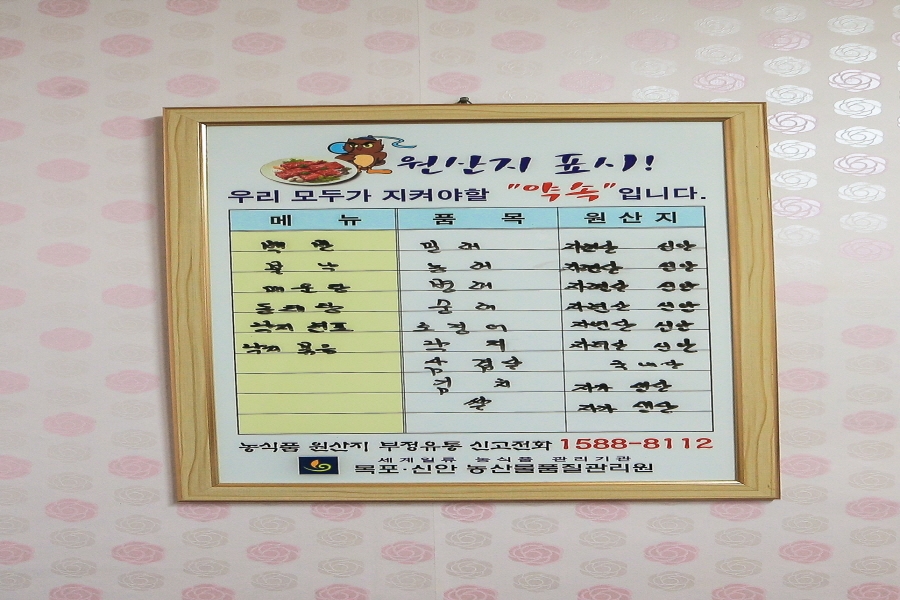 원산지 표시!
우리 모두가 지켜야할 "약속"입니다.
메 뉴 품 목 원 산 지
백 반 민 어 자연산 신안
농 어 자연산 신안
자연산 신안
자연산 신안
낙지 자연산 신안
낙지 볶음 낙 지 자연산 신안
삼 겹 살 국 내 산
김 치 자가 생산
쌀 자가 생산
농식품 원산지 부정유통 신고전화 1588-8112
세계일류 농식품 관리기관
목포·신안 농산물품질관리원